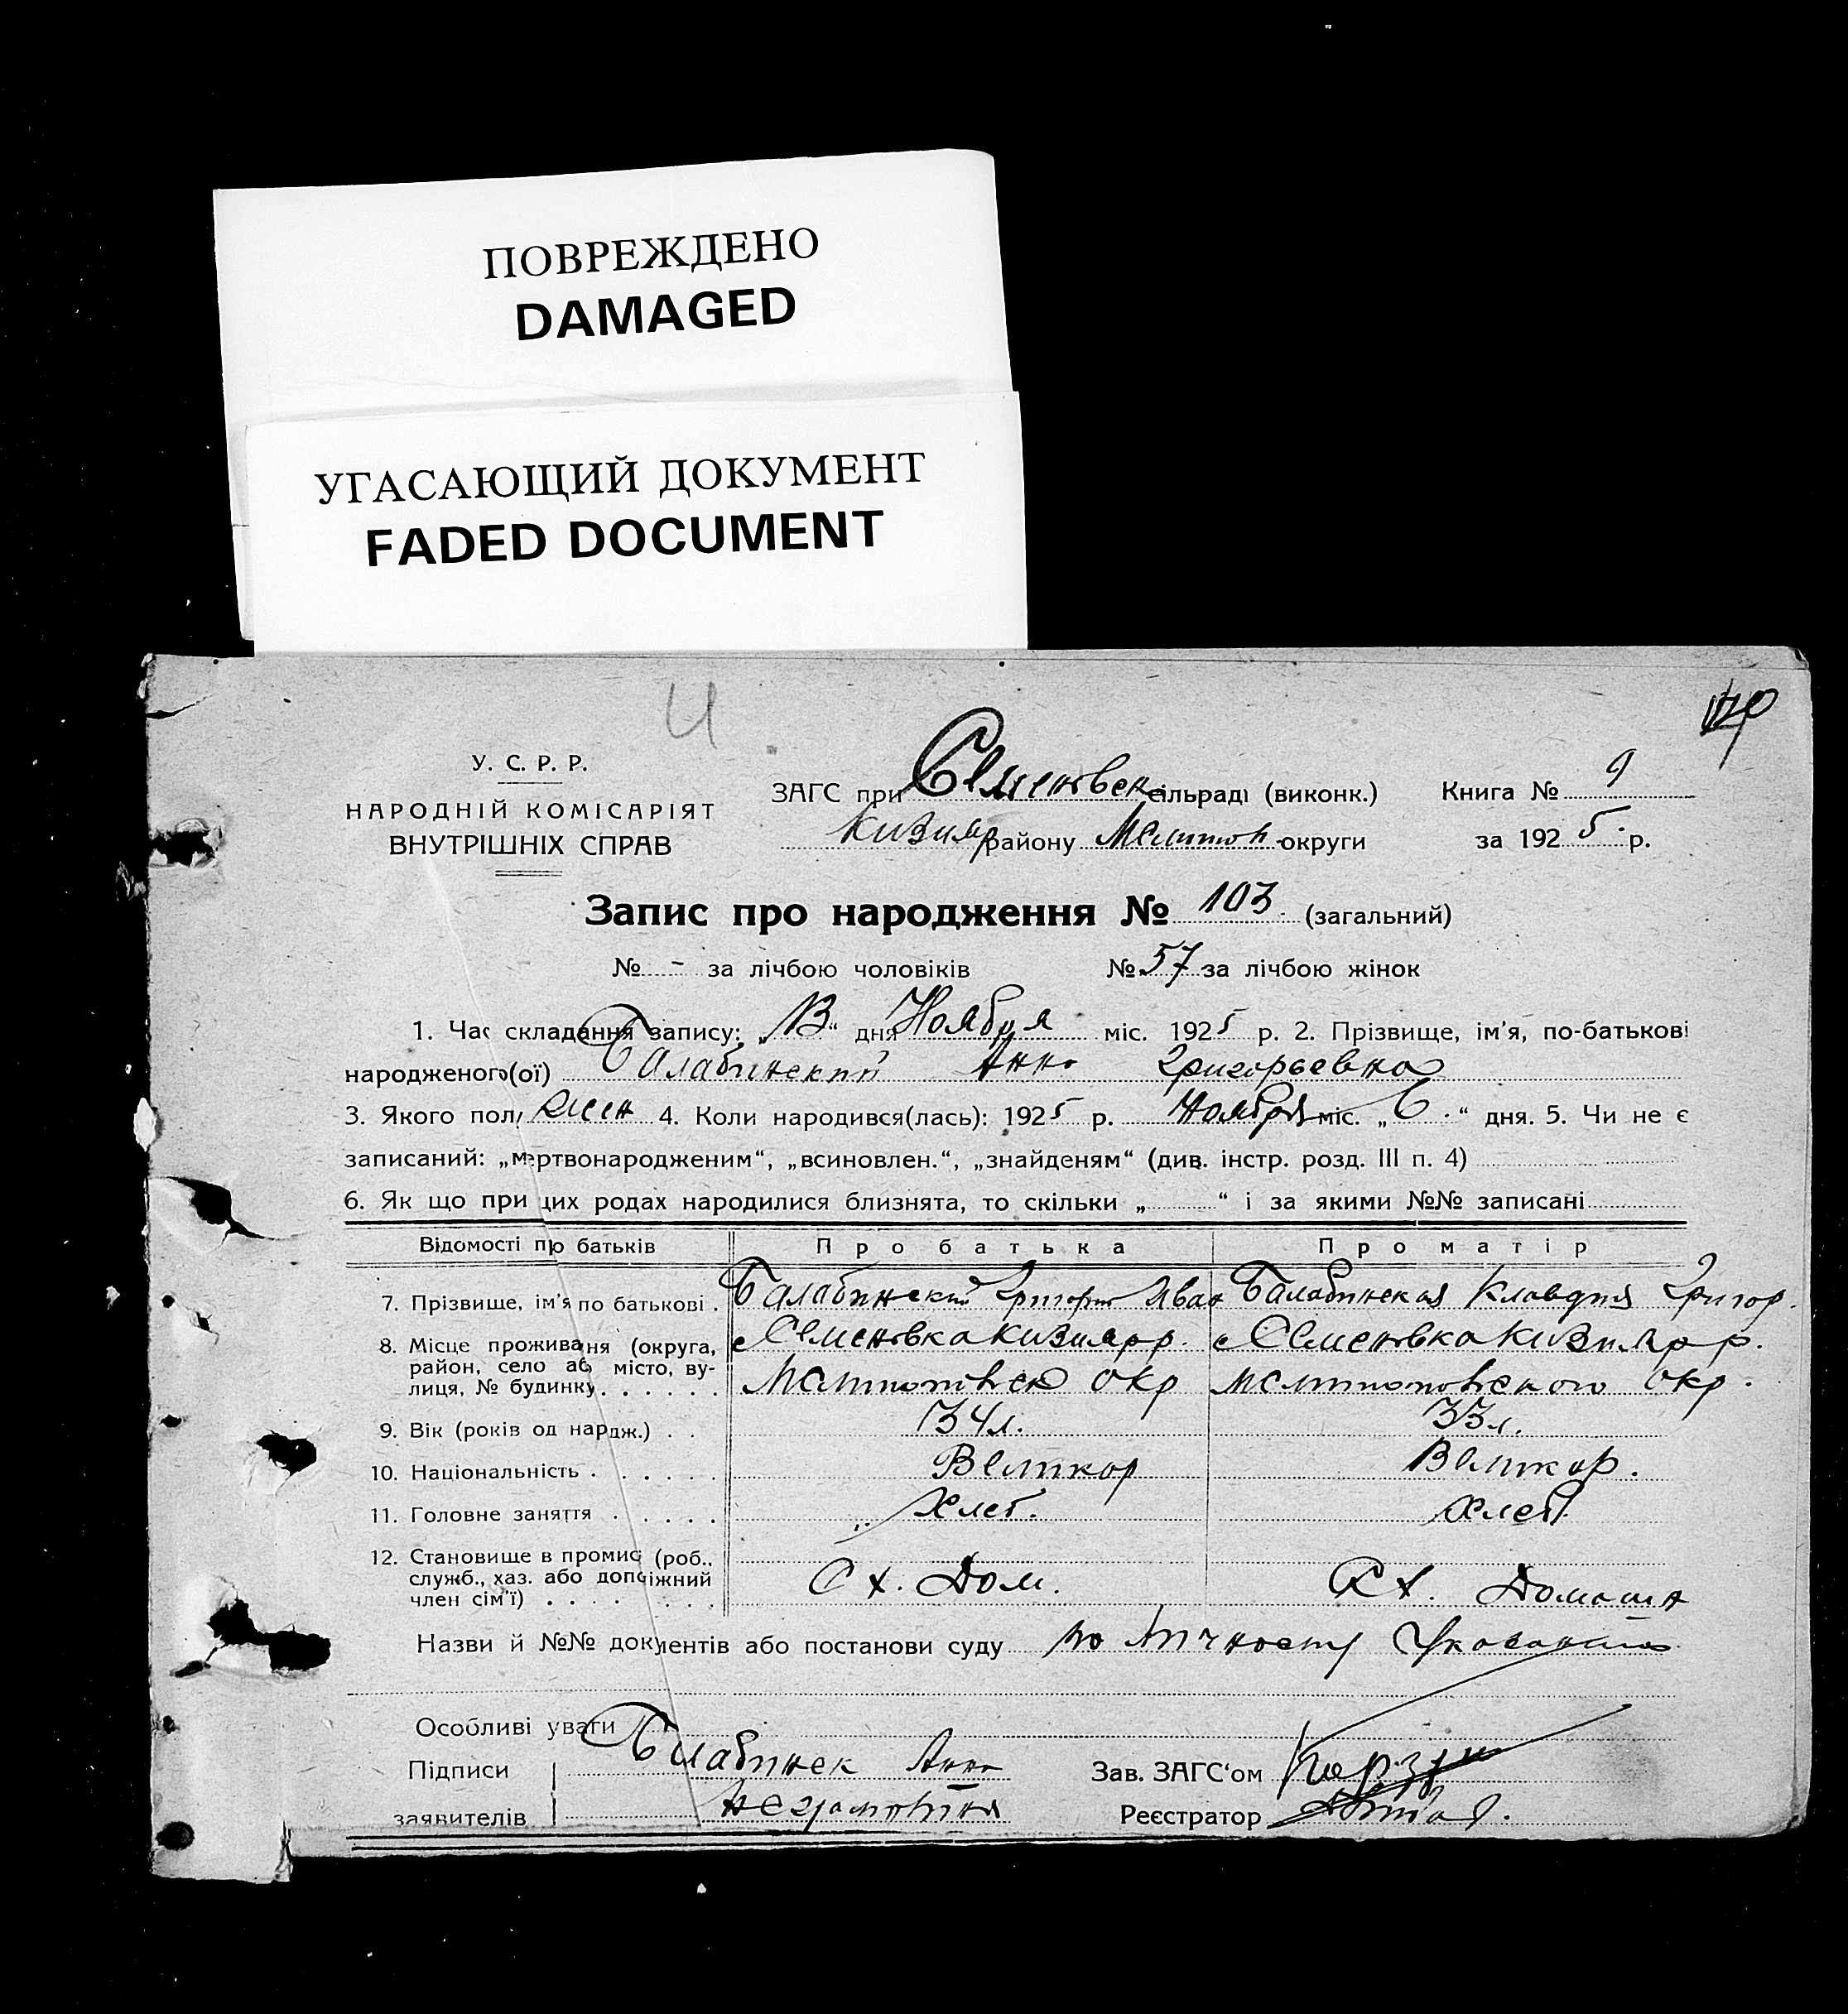 ПОВРЕЖДЕНО
DAMAGED
УГАСАЮЩИЙ ДОКУМЕНТ
FADED DOCUMENT
У. С. Р. Р.
НАРОДНІЙ КОМІСАРІЯТ
ВНУТРІШНІХ СПРАВ
ЗАГС при Семеновск сільраді (виконк.) Книга № 9
Кизияр району Мелитоп. округи за 1925 р.
Запис про народження № 103 (загальний)
№ - за лічбою чоловіків № 57 за лічбою жінок
1. Час складання запису: „13“ дня Ноября міс. 1925 р. 2. Прізвище, ім’я, по-батькові
народженого(ої) Балабинский Анна Григорьевна
3. Якого полу жен 4. Коли народився(лась): 1925 р. Ноября міс. „6.“ дня. 5. Чи не є
записаний: „мертвонародженим“, „всиновлен.“, „знайденям“ (див. інстр. розд. III п. 4)
6. Як що при цих родах народилися близнята, то скільки „ “ і за якими №№ записані
Відомості про батьків Про батька Про матір
7. Прізвище, ім’я по батькові . Балабинский Григорий Иван Балабинская Клавдия Григор.
8. Місце проживаня (округа, с Семеновка Кизияр р. с Семеновка Кизияр р.
район, село або місто, ву-
лиця, № будинку . . . . . . Мелитоповск окр Мелитоповского окр.
9. Вік (років од нардж.) . . 34 л. 33 л.
10. Національність . . . . . . Великор Великор.
11. Головне заняття . . . . . Хлеб. Хлеб.
12. Становище в промис (роб.,
служб., хаз. або допоіжний Сх. Дом. Сх. Домашн
член сім’ї) . . . . . . .
Назви й №№ документів або постанови суду по личному
Особливі уваги
Підписи Балабинск Анна Зав. ЗАГС‘ом
заявителів неграмотная Реєстратор